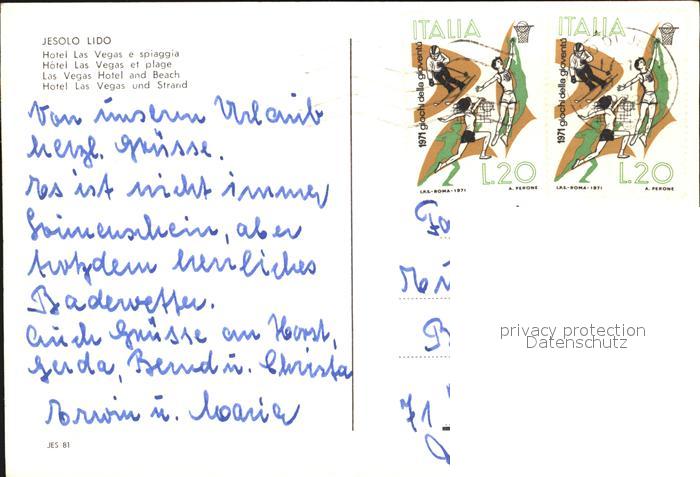 JESOLO LIDO
Hotel Las Vegas e spiaggia
Hôtel Las Vegas et plage
Las Vegas Hotel and Beach
Hotel Las Vegas und Strand
Von unseren Urlaub
herzl. Grüsse.
Es ist nicht immer
Sonnenschein, aber
trotzdem herrliches
Badewetter.
Auch Grüsse an Horst,
Gerda, Bernd u. Christa
Erwin u. Maria
JES 81
ITALIA
1971 giochi della gioventù
L.20
I.P.S.-ROMA-1971 A. PERONE
ITALIA
1971 giochi della gioventù
L.20
I.P.S.-ROMA-1971 A. PERONE
71
privacy protection
Datenschutz